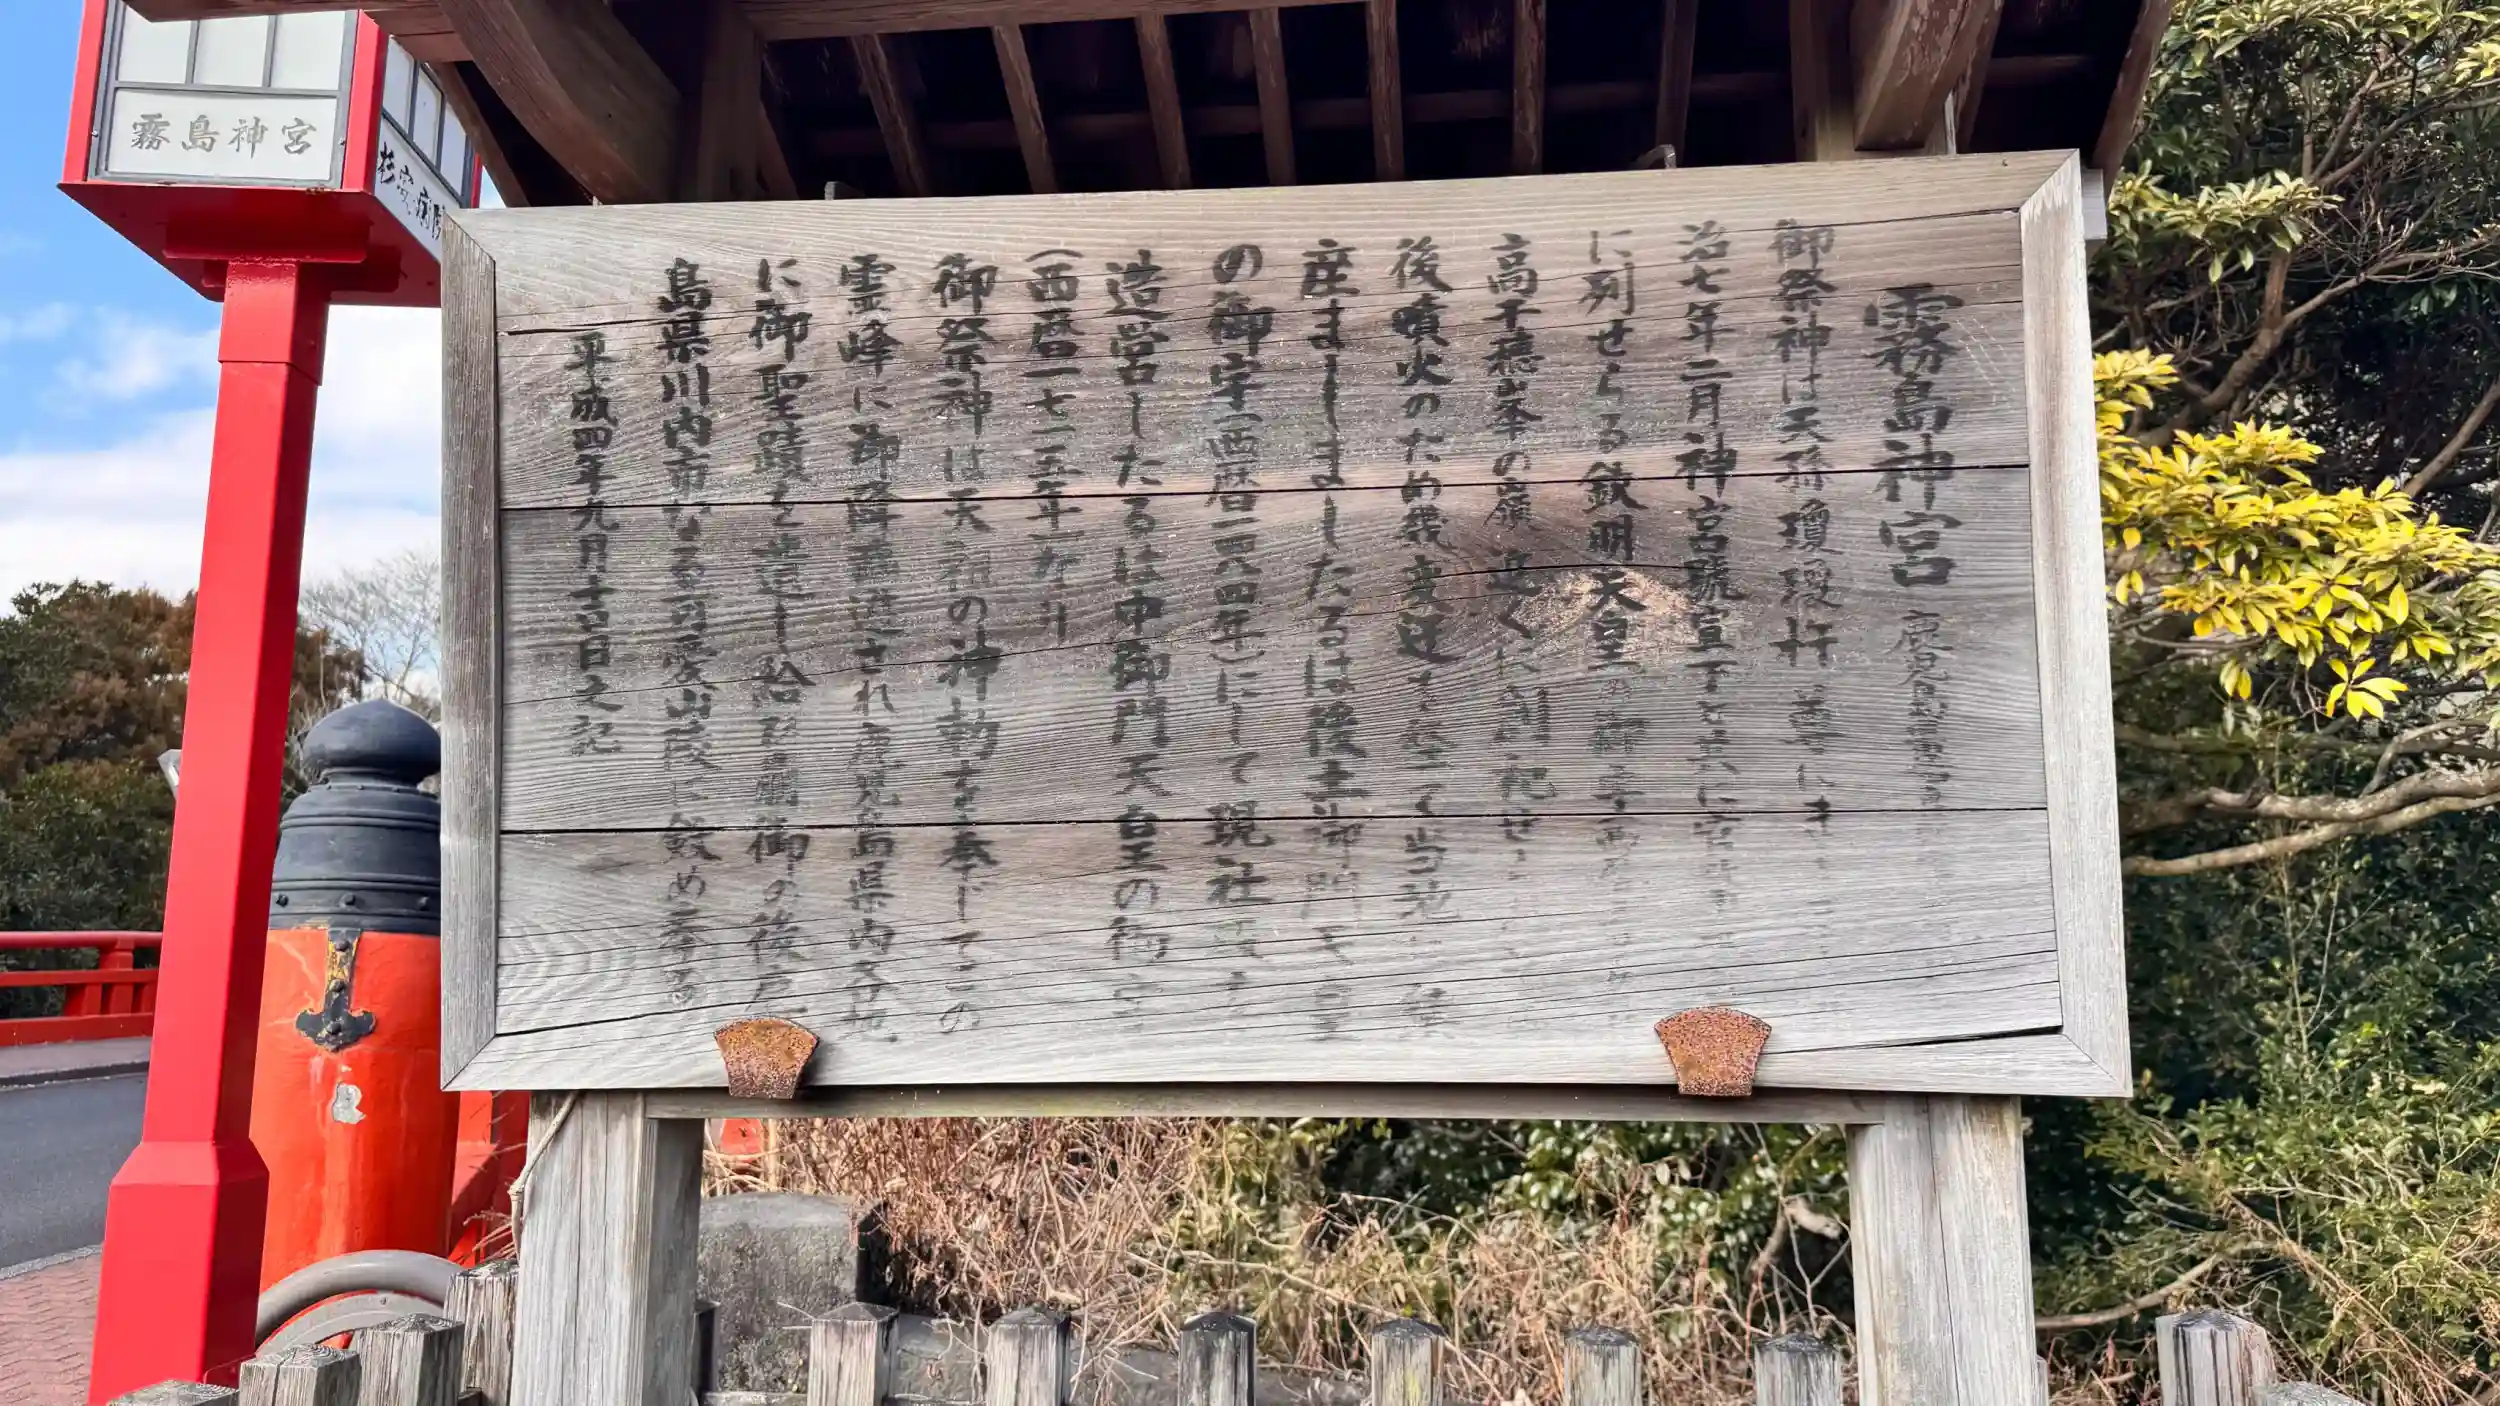 霧島神宮
霧島神宮 鹿児島
御祭神は天孫瓊瓊杵尊に
治七年二月神宮號宣下
に列せらる欽明天皇の御
高千穂山本の嶺近くに創祀せ
後噴火のため幾変迁を経て当地
産まししましたるは後土御門天皇
の御宇(西暦一四八四年)にして現社殿
造営したるは中御門天皇の御
(西暦一七一五年)なり
御祭神は天祖の神勅を奉じてこの
霊峰に御降臨遊され鹿児島県内
に御聖蹟を遺し給ひ崩御の後
島県川内市なる可愛山陵に斂め奉る
平成四年九月十吉日之記